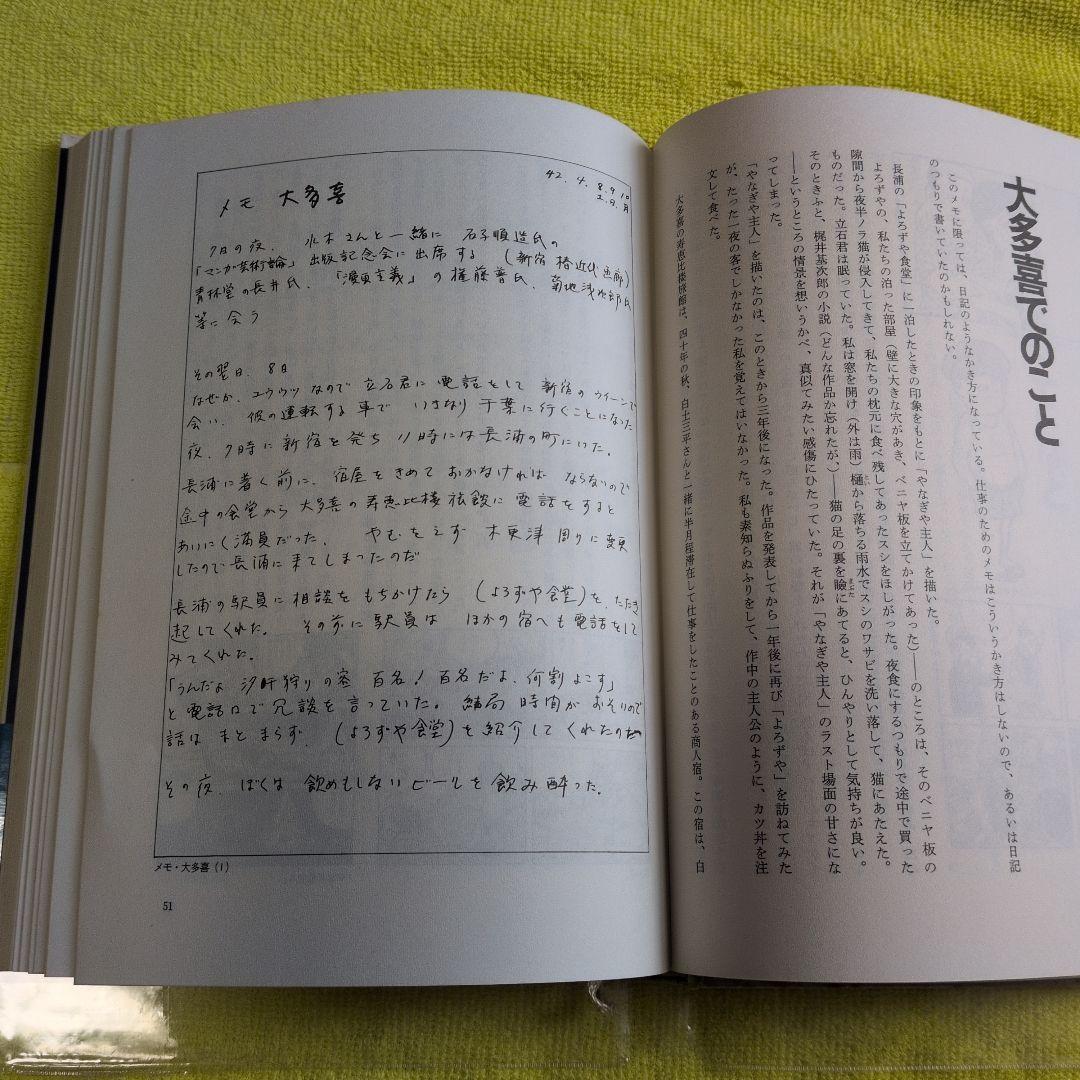 大多喜でのこと
このメモに限っては、日記のようなかき方になっている。仕事のためのメモはこういうかき方はしないので、あるいは日記
のつもりで書いていたのかもしれない。
長浦の「よろずや食堂」に一泊したときの印象をもとに「やなぎや主人」を描いた。
よろずやの、私たちの泊った部屋（壁に大きな穴があき、ベニヤ板を立てかけてあった）――のところは、そのベニヤ板の
隙間から夜半ノラ猫が侵入してきて、私たちの枕元に食べ残してあったスシをほしがった。夜食にするつもりで途中で買った
ものだった。立石君は眠っていた。私は窓を開け（外は雨）樋から落ちる雨水でスシのワサビを洗い落して、猫にあたえた。
そのときふと、梶井基次郎の小説（どんな作品か忘れたが）――猫の足の裏を瞼にあてると、ひんやりとして気持ちが良い。
――というところの情景を想いうかべ、真似てみたい感傷にひたっていた。それが「やなぎや主人」のラスト場面の甘さにな
ってしまった。
「やなぎや主人」を描いたのは、このときから三年後になった。作品を発表してから一年後に再び「よろずや」を訪ねてみた
が、たった一夜の客でしかなかった私を覚えてはいなかった。私も素知らぬふりをして、作中の主人公のように、カツ丼を注
文して食べた。
大多喜の寿恵比楼旅館は、四十年の秋、白土三平さんと一緒に半月程滞在して仕事をしたことのある商人宿。この宿は、白
42.4.8.9.10
土.日.月
メモ 大多喜
7日の夜、水木さんと一緒に 石子順造氏の
「マンガ芸術論」出版記念会に出席する（新宿 椿近代画廊）
青林堂の長井氏、「漫画主義」の権藤晋氏、菊地浅次郎氏
等に会う
その翌日、8日
なぜか、ユウウツなので立石君に電話をして 新宿のウイーンで
会い、彼の運転する車で いきなり千葉に行くことになった
夜、7時に新宿を発ち 11時には長浦の町にいた。
長浦に着く前に、宿屋をきめておかなければ ならないので
途中の食堂から大多喜の寿恵比楼旅館に電話をすると
あいにく満員だった、 やむをえず 木更津周りに変更
したので長浦に来てしまったのだ
長浦の駅員に相談をもちかけたら（よろずや食堂）を、たたき
起してくれた。 その前に駅員は ほかの宿へも電話をして
みてくれた。
「うんだよ 汐肝狩りの客 百名！百名だよ、何割よこす」
と電話口で冗談を言っていた。 結局 時間がおそいので
話は まとまらず、（よろずや食堂）を紹介してくれたのだ
その夜、ぼくは 飲めもしないビールを飲み酔った。
メモ・大多喜（1）
51